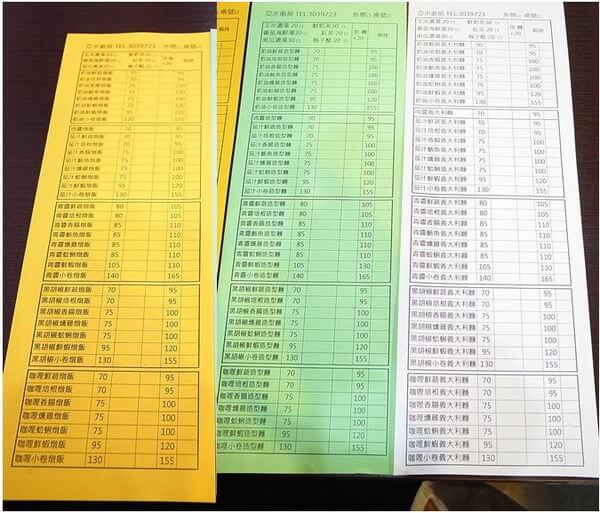 亞米廚房 TEL:3039723 外帶□ 桌號□
玉米濃湯20□ 鮮奶茶30□
蕃茄海鮮湯30□ 紅茶20□
南瓜濃湯30□ 梅子醋20□ +20 焗烤
奶油鮮蔬燉飯 70 95
奶油培根燉飯 70 95
奶油香腸燉飯 75 100
奶油鮪魚燉飯 75 100
奶油燻雞燉飯 75 100
奶油蛤蜊燉飯 75 100
奶油鮮蝦燉飯 95 120
奶油小卷燉飯 130 155
肉醬燉飯 70 95
茄汁鮮蔬燉飯 70 95
茄汁培根燉飯 70 95
茄汁香腸燉飯 75 100
茄汁鮪魚燉飯 75 100
茄汁燻雞燉飯 75 100
茄汁蛤蜊燉飯 75 100
茄汁鮮蝦燉飯 95 120
茄汁小卷燉飯 130 155
青醬鮮蔬燉飯 80 105
青醬培根燉飯 80 105
青醬香腸燉飯 85 110
青醬鮪魚燉飯 85 110
青醬燻雞燉飯 85 110
青醬蛤蜊燉飯 85 110
青醬鮮蝦燉飯 105 130
青醬小卷燉飯 140 165
黑胡椒鮮蔬燉飯 70 95
黑胡椒培根燉飯 70 95
黑胡椒香腸燉飯 75 100
黑胡椒燻雞燉飯 75 100
黑胡椒蛤蜊燉飯 75 100
黑胡椒鮮蝦燉飯 95 120
黑胡椒小卷燉飯 130 155
咖哩鮮蔬燉飯 70 95
咖哩培根燉飯 75 100
咖哩香腸燉飯 75 100
咖哩燻雞燉飯 75 100
咖哩蛤蜊燉飯 75 100
咖哩鮮蝦燉飯 95 120
咖哩小卷燉飯 130 155
亞米廚房 TEL:3039723 外帶□ 桌號□
玉米濃湯20□ 鮮奶茶30□
蕃茄海鮮湯30□ 紅茶20□ 加麵 焗烤
南瓜濃湯30□ 梅子醋20□ +20
奶油鮮蔬造型麵 70 95
奶油培根造型麵 70 95
奶油香腸造型麵 75 100
奶油鮪魚造型麵 75 100
奶油燻雞造型麵 75 100
奶油蛤蜊造型麵 75 100
奶油鮮蝦造型麵 95 120
奶油小卷造型麵 130 155
肉醬造型麵 70 95
茄汁鮮蔬造型麵 70 95
茄汁培根造型麵 70 95
茄汁香腸造型麵 75 100
茄汁鮪魚造型麵 75 100
茄汁燻雞造型麵 75 100
茄汁蛤蜊造型麵 75 100
茄汁鮮蝦造型麵 95 120
茄汁小卷造型麵 130 155
青醬鮮蔬造型麵 80 105
青醬培根造型麵 80 105
青醬香腸造型麵 85 110
青醬鮪魚造型麵 85 110
青醬燻雞造型麵 85 110
青醬蛤蜊造型麵 85 110
青醬鮮蝦造型麵 105 130
青醬小卷造型麵 140 165
黑胡椒鮮蔬造型麵 70 95
黑胡椒培根造型麵 70 95
黑胡椒香腸造型麵 75 100
黑胡椒燻雞造型麵 75 100
黑胡椒蛤蜊造型麵 75 100
黑胡椒鮮蝦造型麵 95 120
黑胡椒小卷造型麵 130 155
咖哩鮮蔬造型麵 70 95
咖哩培根造型麵 75 100
咖哩香腸造型麵 75 100
咖哩燻雞造型麵 75 100
咖哩蛤蜊造型麵 75 100
咖哩鮮蝦造型麵 95 120
咖哩小卷造型麵 130 155
亞米廚房 TEL:3039723 外帶□ 桌號□
玉米濃湯20□ 鮮奶茶30□
蕃茄海鮮湯30□ 紅茶20□ 加麵 焗烤
南瓜濃湯30□ 梅子醋20□ +20
奶油鮮蔬義大利麵 70 95
奶油培根義大利麵 70 95
奶油香腸義大利麵 75 100
奶油鮪魚義大利麵 75 100
奶油燻雞義大利麵 75 100
奶油蛤蜊義大利麵 75 100
奶油鮮蝦義大利麵 95 120
奶油小卷義大利麵 130 155
肉醬義大利麵 70 95
茄汁鮮蔬義大利麵 70 95
茄汁培根義大利麵 70 95
茄汁香腸義大利麵 75 100
茄汁鮪魚義大利麵 75 100
茄汁燻雞義大利麵 75 100
茄汁蛤蜊義大利麵 75 100
茄汁鮮蝦義大利麵 95 120
茄汁小卷義大利麵 130 155
青醬鮮蔬義大利麵 80 105
青醬培根義大利麵 80 105
青醬香腸義大利麵 85 110
青醬鮪魚義大利麵 85 110
青醬燻雞義大利麵 85 110
青醬蛤蜊義大利麵 85 110
青醬鮮蝦義大利麵 105 130
青醬小卷義大利麵 140 165
黑胡椒鮮蔬義大利麵 70 95
黑胡椒培根義大利麵 70 95
黑胡椒香腸義大利麵 75 100
黑胡椒燻雞義大利麵 75 100
黑胡椒蛤蜊義大利麵 75 100
黑胡椒鮮蝦義大利麵 95 120
黑胡椒小卷義大利麵 130 155
咖哩鮮蔬義大利麵 70 95
咖哩培根義大利麵 70 95
咖哩香腸義大利麵 75 100
咖哩燻雞義大利麵 75 100
咖哩蛤蜊義大利麵 75 100
咖哩鮮蝦義大利麵 95 120
咖哩小卷義大利麵 130 155